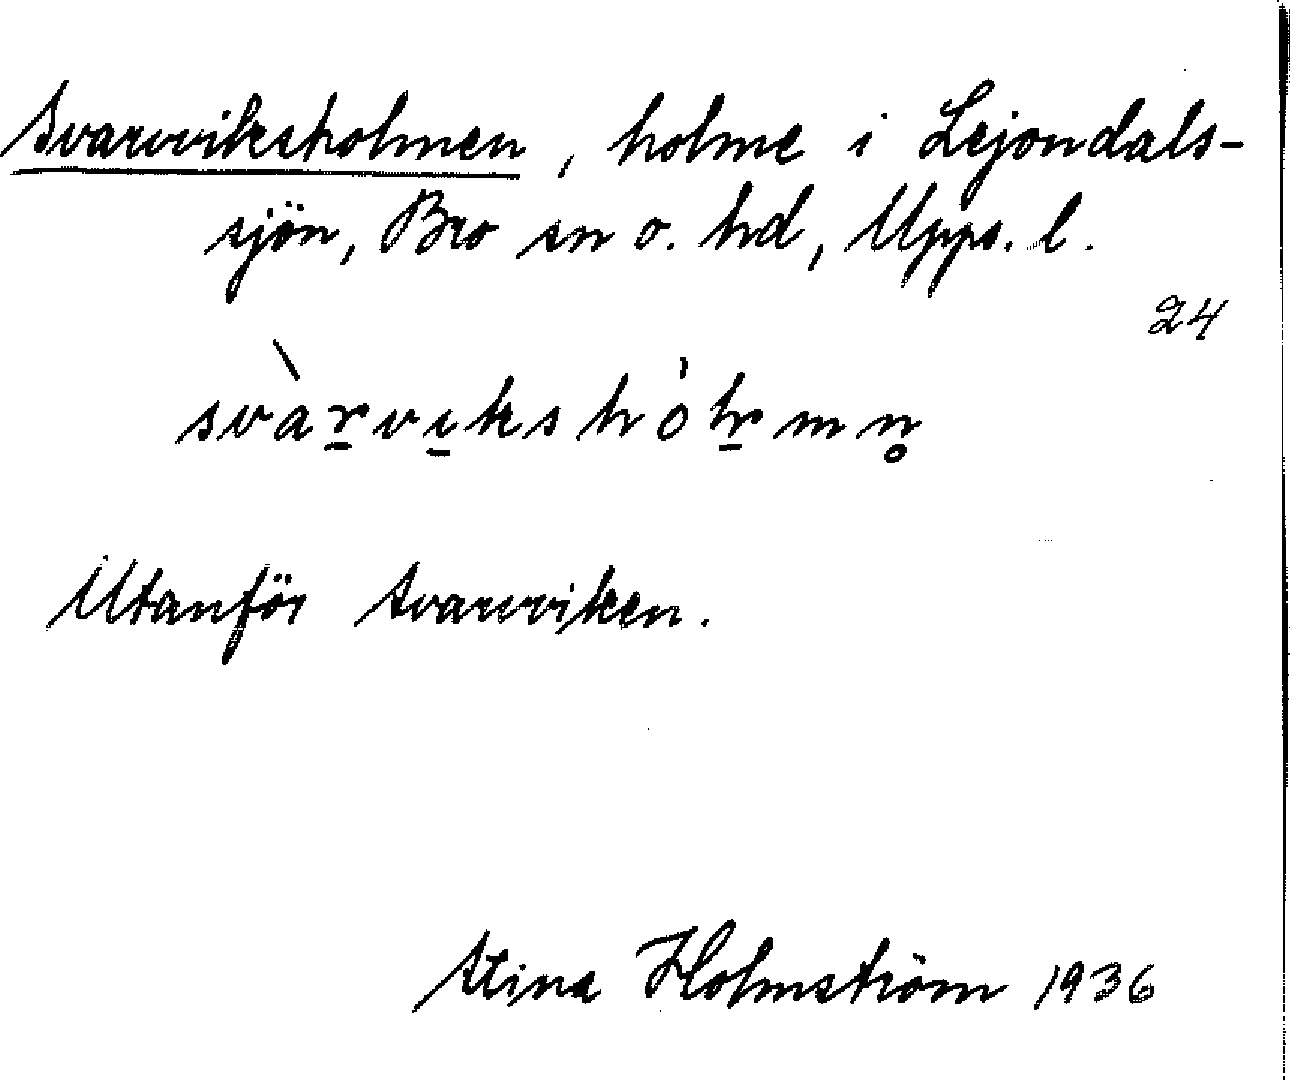 Svarvviksholmen, holme i Lejondals-
sjön, Bro sn o. hd, Upps. l.
24
svàr̲vi̲kshól̲mn̥
Utanför Svarvviken.
Stina Holmström 1936